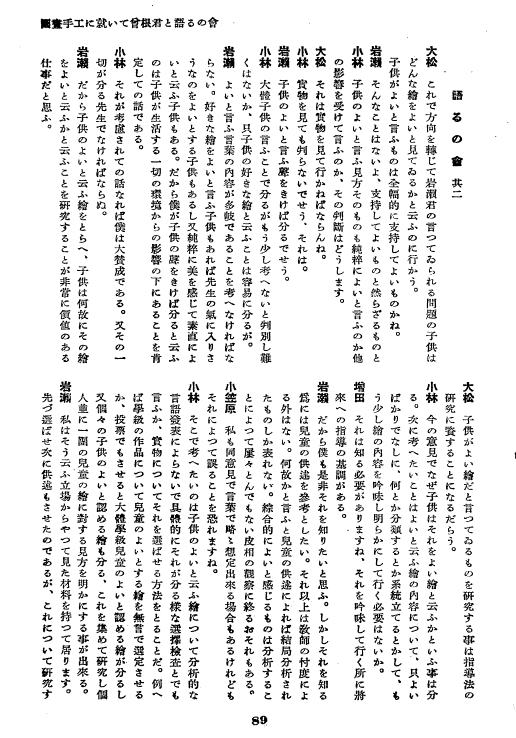 圖畫手工に就いて曾根君と語るの會
語るの會 其二
大松 これで方向を轉じて岩瀬君の言つてゐられる問題の子供は
どんな繪をよいと見てゐるかと云ふのに行かう。
子供がよいと言ふものは全幅的に支持してよいものかね。
岩瀬 そんなことはないよ、支持してよいものと然らざるものと
小林 子供のよいと言ふ見方そのものも純粹によいと言ふのか他
の影響を受けて言ふのか、その判斷はどうします。
大松 それは實物を見て行かねばならんね。
小林 實物を見ても判らないでせう、それは。
岩瀬 子供のよいと言ふ聲をきけば分るでせう。
小林 大體子供の言ふことで分るがもう少し考へないと判別し難
くはないか、只子供の好きな繪と云ふことは容易に分るが。
岩瀬 よいと言ふ言葉の内容が多岐であることを考へなければな
らない。好きな繪をよいと言ふ子供もあれば先生の氣に入りさ
うなのをよいとする子供もあるし又純粹に美を感じて素直によ
いと云ふ子供もある。だから僕が子供の聲をきけば分ると云ふ
のは子供が生活する一切の環境からの影響の下にあることを肯
定しての話である。
小林 それが考慮されての話なれば僕は大賛成である。又その一
切が分る先生でなければならぬ。
岩瀬 だから子供のよいと云ふ繪をとらへ、子供は何故にその繪
をよいと云ふかと云ふことを研究することが非常に價値のある
仕事だと思ふ。
大松 子供がよい繪だと言つてゐるものを研究する事は指導法の
研究に資することになるだらう。
小林 今の意見でなぜ子供はそれをよい繪と云ふかといふ事は分
る。次に考へたいことはよいと云ふ繪の内容について、只よい
ばかりでなしに、何とか分類するとか系統立てるとかして、も
う少し繪の内容を吟味し明らかにして行く必要はないか。
増田 それは知る必要がありますね、それを吟味して行く所に將
來への指導の基調がある。
岩瀬 だから僕も是非それを知りたいと思ふ。しかしそれを知る
爲には兒童の供述を參考としたい。それ以上は敎師の忖度によ
る外はない。何故かと言ふと兒童の供述によれば結局分析され
たものしか表れない。綜合的によいと感じるものは分析するこ
とによつて屢々とんでもない皮相の觀察に終るおそれもある。
小笠原 私も同意見で言葉で略々想定出來る場合もあるけれども
それによつて誤ることを恐れますね。
小林 そこで考へたいのは子供のよいと云ふ繪について分析的な
言語發表によらないで具體的にそれが分る樣な選擇檢査とでも
言ふか、實物についてそれを選ばせる方法をとることだ。例へ
ば學級の作品について兒童のよいとする繪を無言で選定させる
か、投票でもさせると大體學級兒童のよいと認める繪が分るし
又個々の子供のよいと認める繪も分る、これを集めて研究し個
人並に一團の兒童の繪に對する見方を明かにする事が出來る。
岩瀬 私はさう云ふ立場からやつて見た材料を持つて居ります。
先づ選ばせ次に供述もさせたのであるが、これについて研究す
89